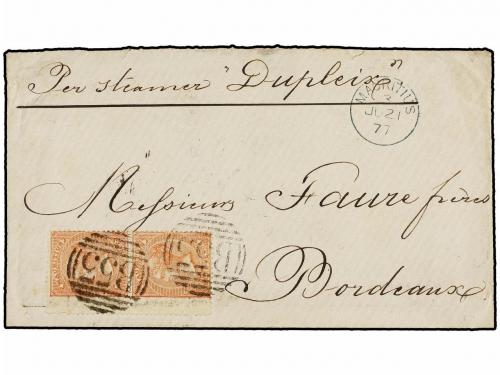 Per steamer "Dupleix"
MAURITIUS
JU 21
77
Messieurs Faure frères
Bordeaux
B53
B53